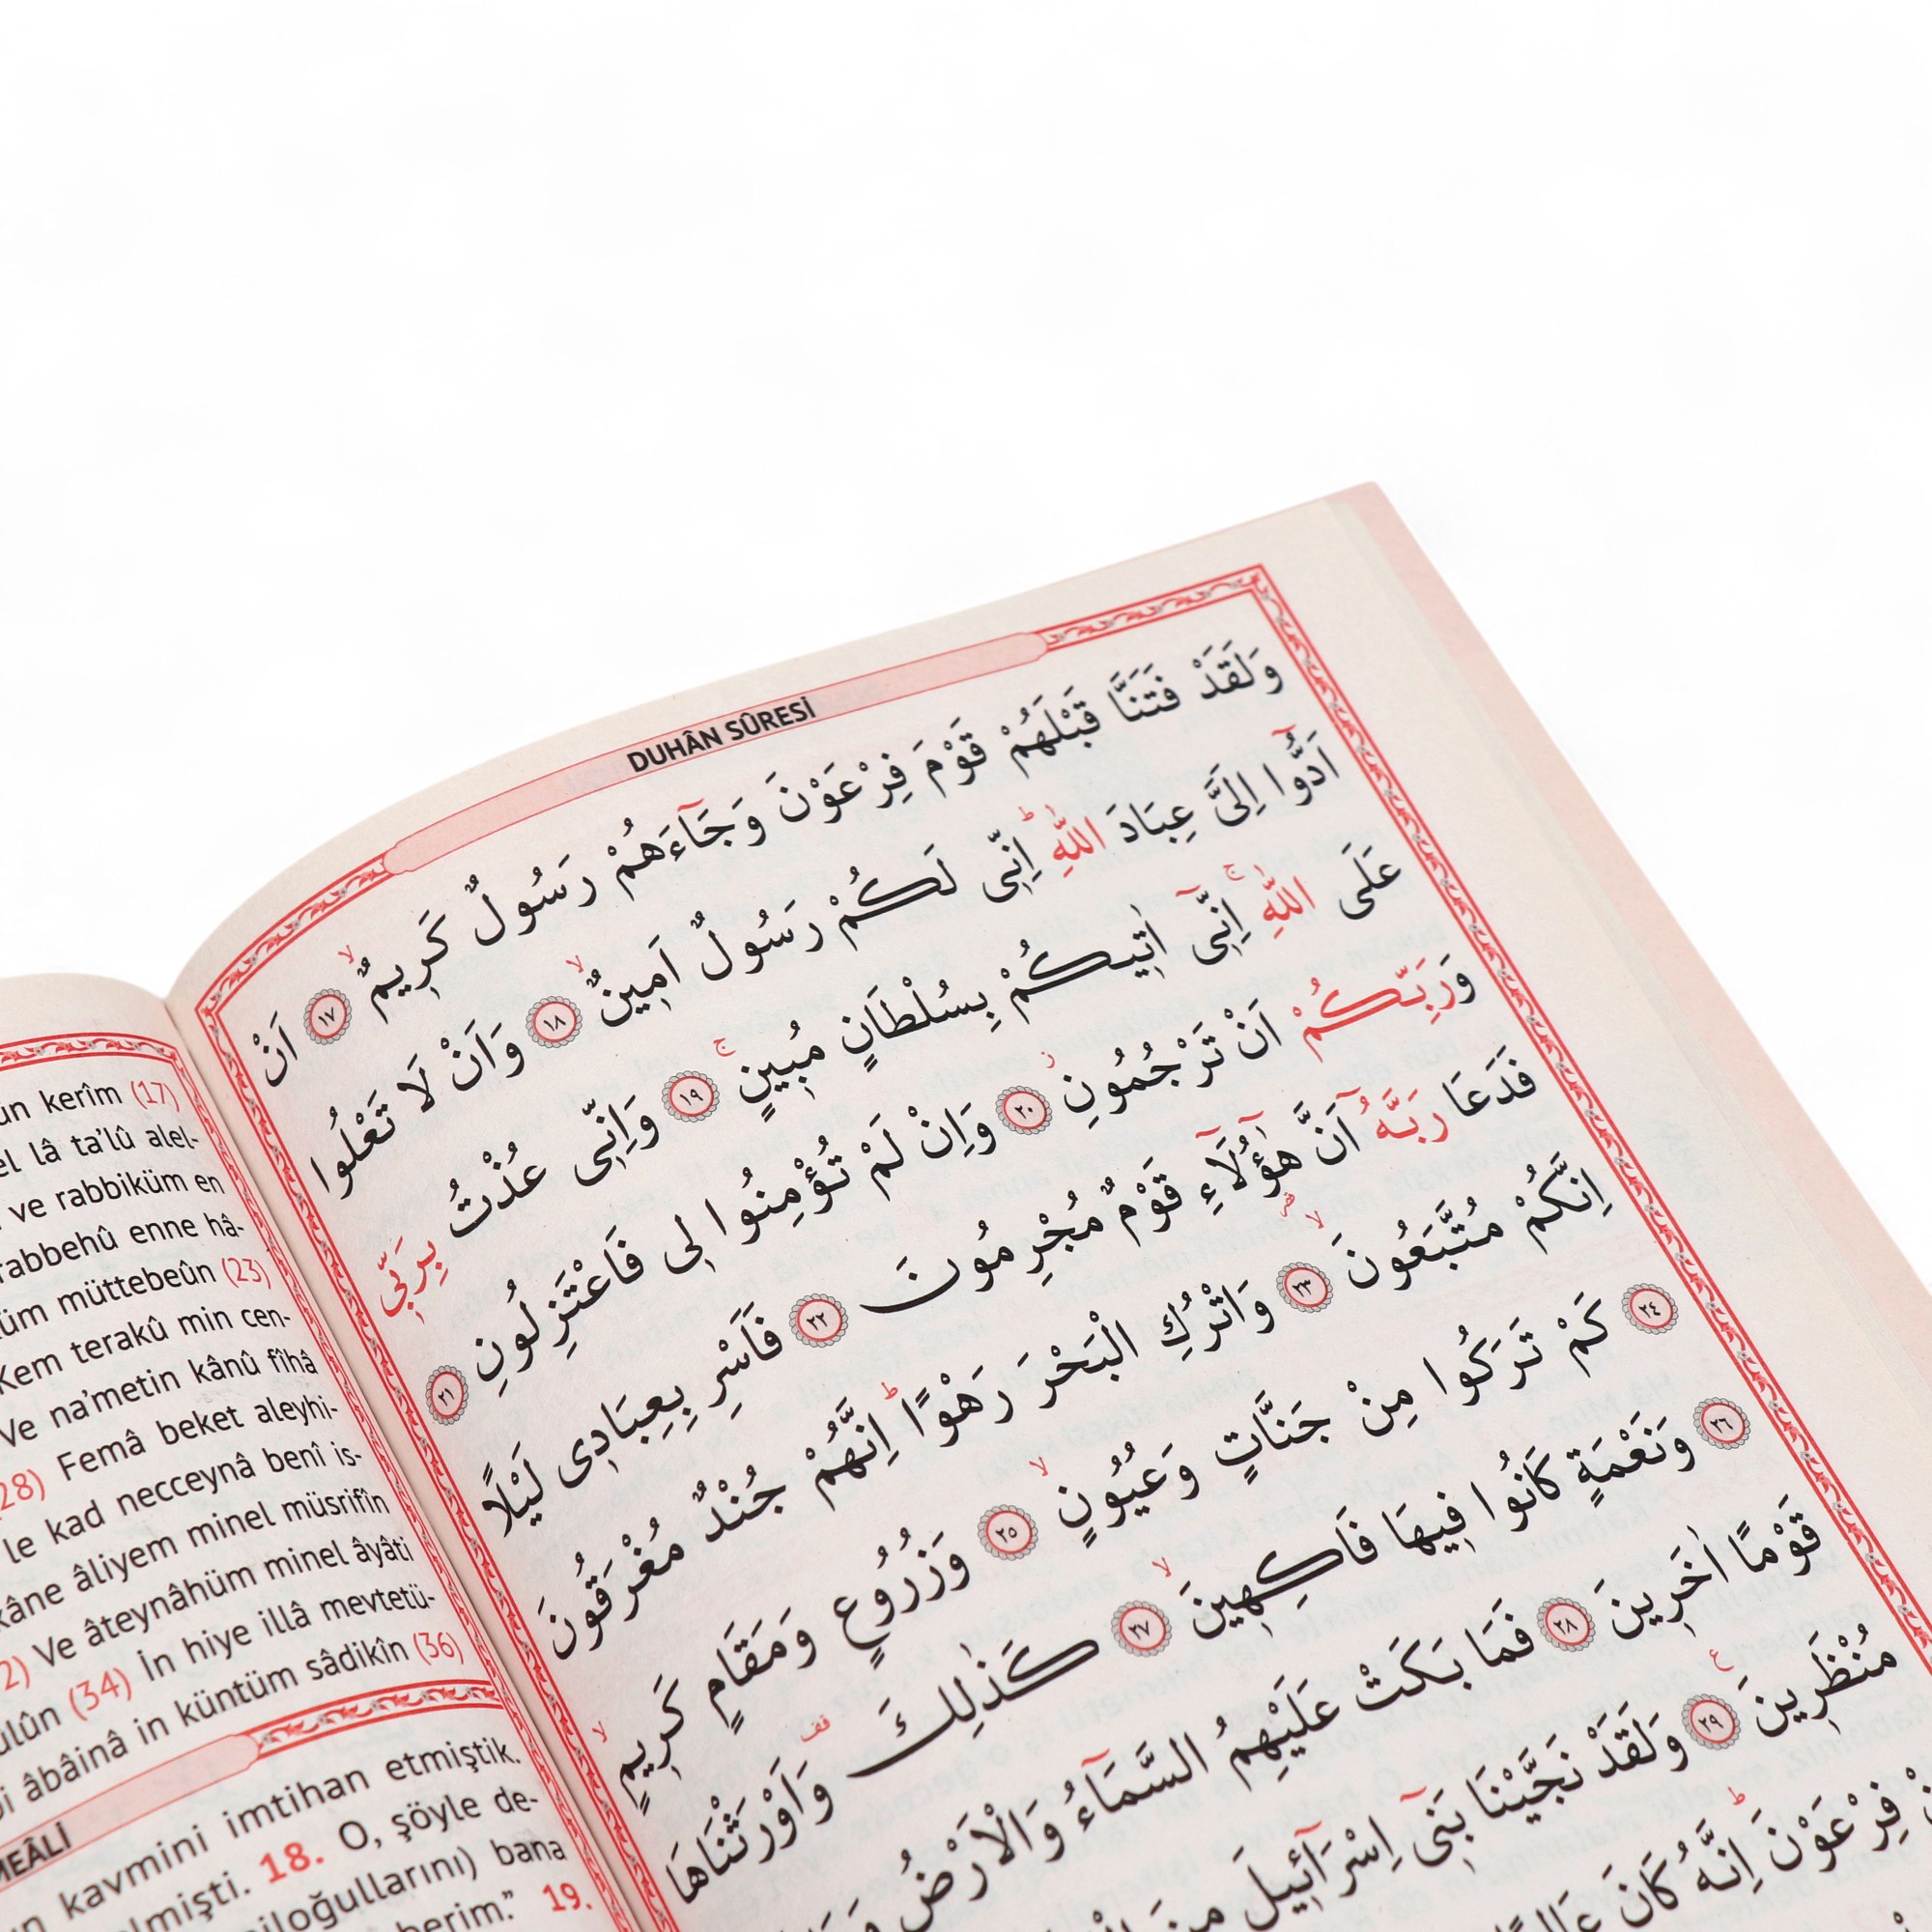 DUHÂN SÛRESİ
وَلَقَدْ فَتَنَّا قَبْلَهُمْ قَوْمَ فِرْعَوْنَ وَجَٓاءَهُمْ رَسُولٌ كَر۪يمٌۙ ﴿١٧﴾ اَنْ
اَدُّٓوا اِلَيَّ عِبَادَ اللّٰهِۜ اِنّ۪ي لَكُمْ رَسُولٌ اَم۪ينٌۙ ﴿١٨﴾ وَاَنْ لَا تَعْلُوا
عَلَى اللّٰهِۚ اِنّ۪ٓي اٰت۪يكُمْ بِسُلْطَانٍ مُب۪ينٍۚ ﴿١٩﴾ وَاِنّ۪ي عُذْتُ بِرَبّ۪ي
وَرَبِّكُمْ اَنْ تَرْجُمُونِۘ ﴿٢٠﴾ وَاِنْ لَمْ تُؤْمِنُوا ل۪ي فَاعْتَزِلُونِ ﴿٢١﴾
فَدَعَا رَبَّهُٓ اَنَّ هٰٓؤُ۬لَٓاءِ قَوْمٌ مُجْرِمُونَ ﴿٢٢﴾ فَاَسْرِ بِعِبَاد۪ي لَيْلًا
اِنَّكُمْ مُتَّبَعُونَۙ ﴿٢٣﴾ وَاتْرُكِ الْبَحْرَ رَهْوًاۜ اِنَّهُمْ جُنْدٌ مُغْرَقُونَ
﴿٢٤﴾ كَمْ تَرَكُوا مِنْ جَنَّاتٍ وَعُيُونٍۙ ﴿٢٥﴾ وَزُرُوعٍ وَمَقَامٍ كَر۪يمٍۙ
﴿٢٦﴾ وَنَعْمَةٍ كَانُوا ف۪يهَا فَاكِه۪ينَۙ ﴿٢٧﴾ كَذٰلِكَ وَاَوْرَثْنَاهَا
قَوْمًا اٰخَر۪ينَ ﴿٢٨﴾ فَمَا بَكَتْ عَلَيْهِمُ السَّمَٓاءُ وَالْاَرْضُ
مُنْظَر۪ينَ ﴿٢٩﴾ وَلَقَدْ نَجَّيْنَا بَن۪ٓي اِسْرَٓائ۪يلَ مِنَ
فِرْعَوْنَۜ اِنَّهُ كَانَ
kerîm (17)
lâ ta'lû alel-
ve rabbiküm en
rabbehû enne hâ-
müttebeûn (23)
Kem terakû min cen-
Ve na'metin kânû fîhâ
28) Femâ beket aleyhi-
le kad necceynâ benî is-
kâne âliyem minel müsrifîn
2) Ve âteynâhüm minel âyâti
(34) İn hiye illâ mevtetü-
âbâinâ in küntüm sâdikîn (36)
MEÂLİ
kavmini imtihan etmiştik.
18. O, şöyle de-
bana
19.